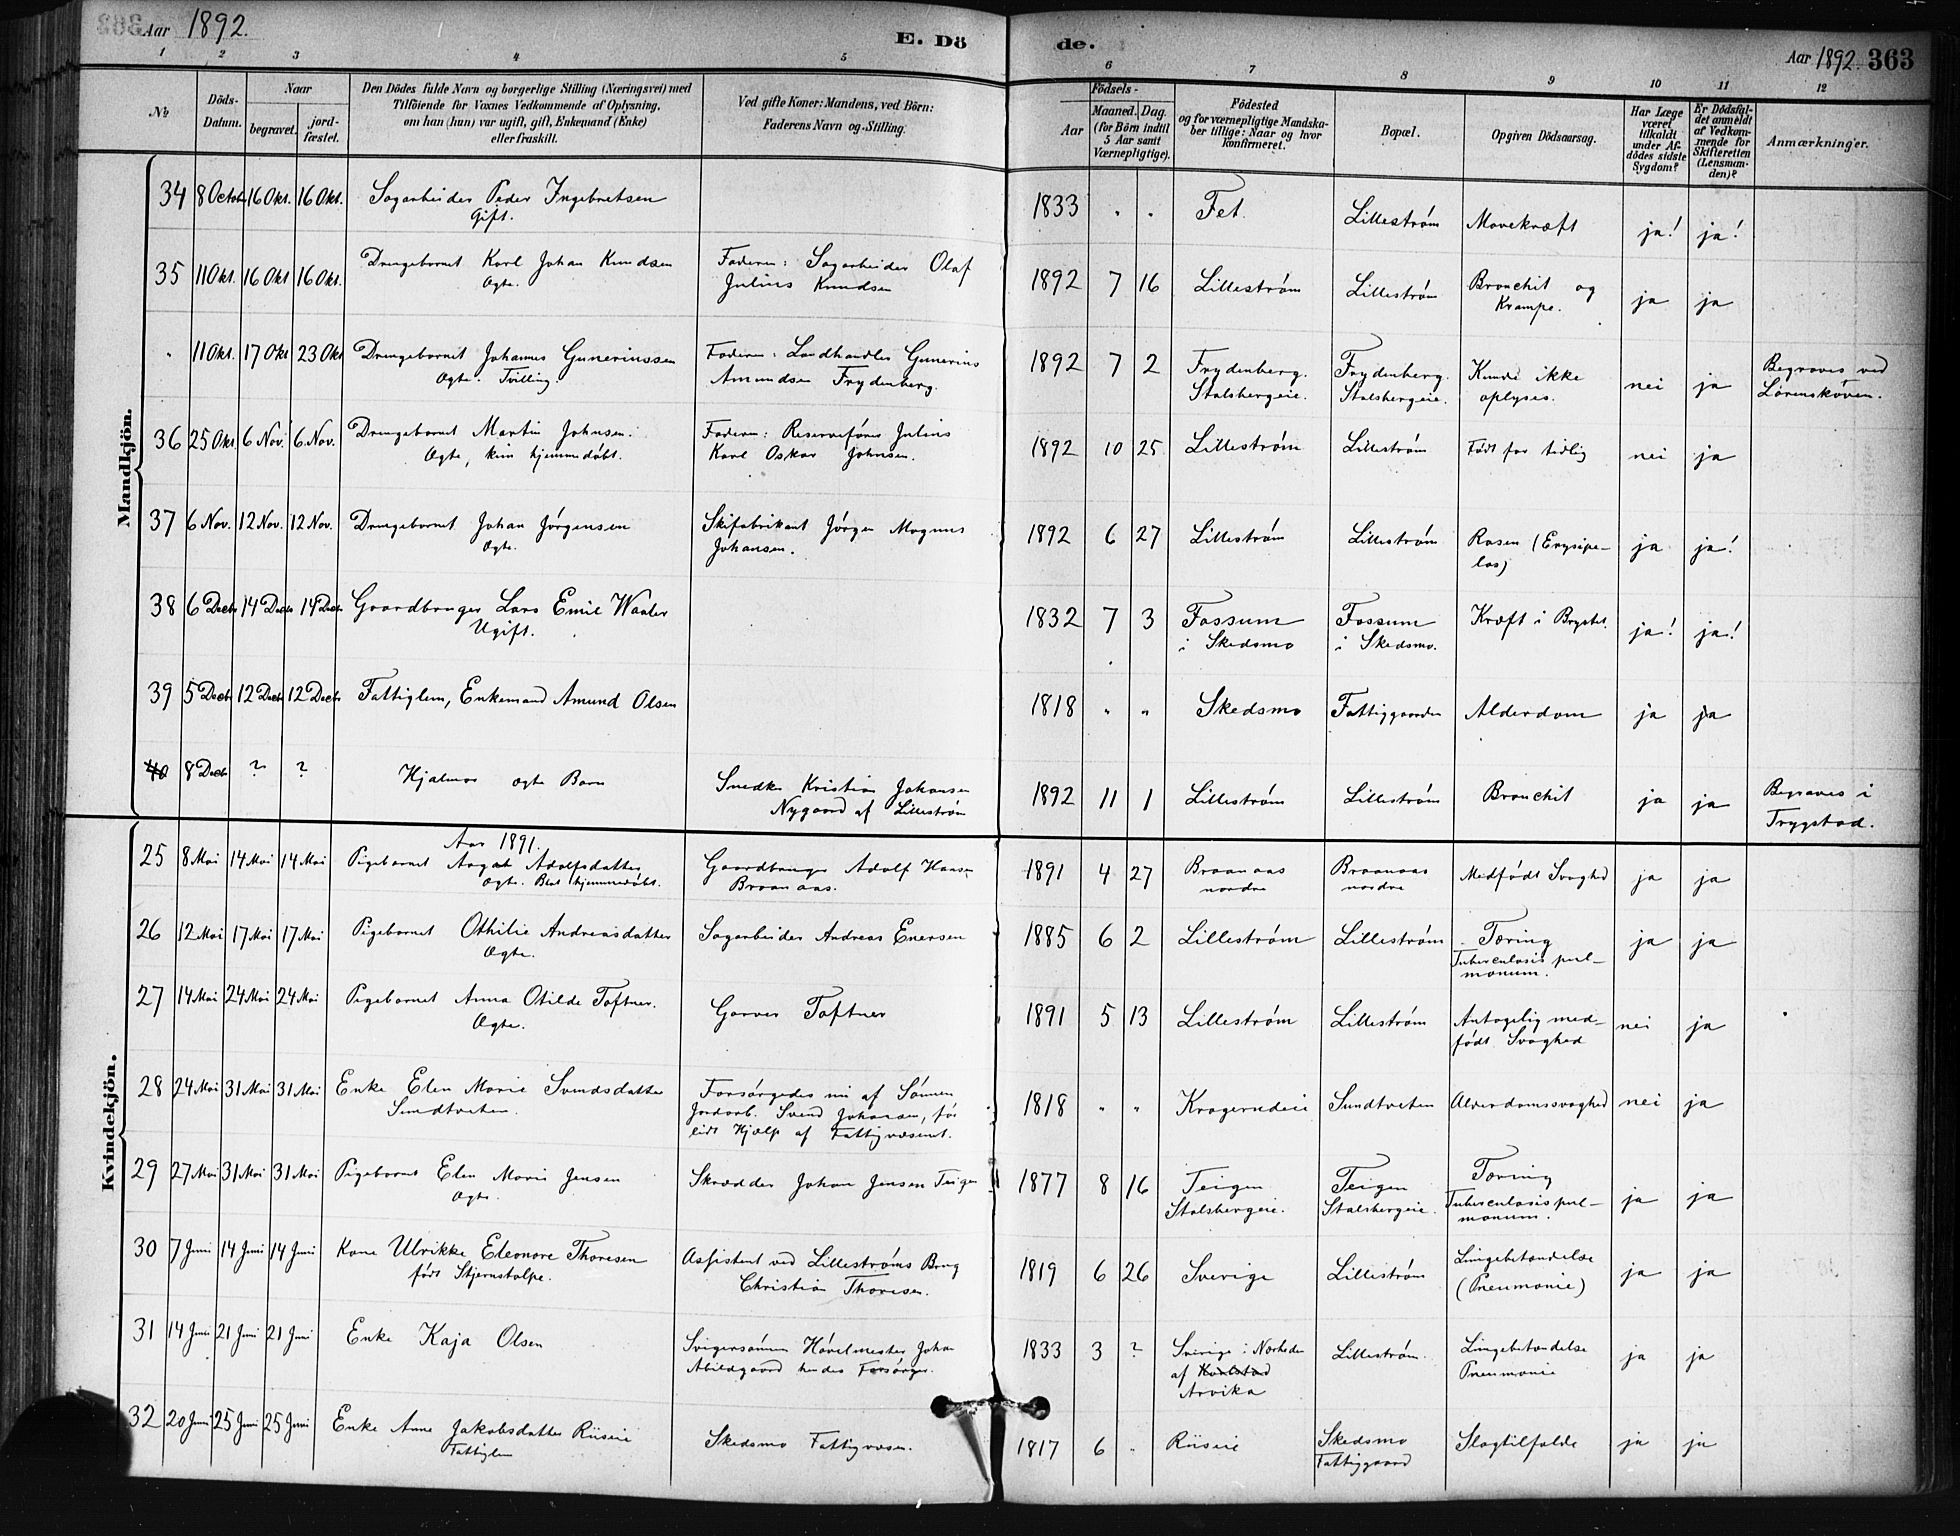 Aar 1892. E. Dö de. Aar 1892. 363
1 2 3 4 5 6 7 8 9 10 11 12
No
Döds-Datum.
Naar
begravet. jord-fæstet.
Den Dödes fulde Navn og borgerlige Stilling (Næringsvei) med
Tilföiende for Voxnes Vedkommende af Oplysning,
om han (hun) var ugift, gift, Enkemand (Enke)
eller fraskilt.
Ved gifte Koner: Mandens, ved Börn:
Faderens Navn og Stilling.
Födsels-
Aar Maaned. Dag.
(for Börn indtil
5 Aar samt
Værnepligtige).
Födested
og for værnepligtige Mandska-
ber tillige: Naar og hvor
konfirmeret.
Bopæl.
Opgiven Dödsaarsag.
Har Læge
været
tilkaldt
under Af-
dödes sidste
Sygdom?
Er Dödsfal-
det anmeldt
af Vedkom-
mende for
Skifteretten
(Lensman-
den)?
Anmærkninger.
Mandkjön.
34 8 Octob 16 Okt. 16 Okt. Sagarbeider Peder Ingebretsen 1833 " " Fet. Lillestrøm Mavekræft ja! ja!
Gift.
35 11 Okt. 16 Okt 16 Okt. Drengebarnet Karl Johan Knudsen Faderen: Sagarbeider Olaf 1892 7 16 Lillestrøm Lillestrøm Bronchit og ja ja
Ægte. Julius Knudsen Krampe.
" 11 Okt. 17 Okt 23 Okt Drengebarnet Johannes Gunerinssen Faderen: Landhandler Gunerius 1892 7 2 Frydenberg. Frydenberg. Kunde ikke nei ja Begraves ved
Ægte. Tvilling. Amundsen Frydenberg. Stalsbergeie. Stalsbergeie. oplyses. Lørenskoven.
36 25 Okt. 6 Nov. 6 Nov. Drengebarnet Martin Johnsen. Faderen: Reservefører Julius 1892 10 25 Lillestrøm Lillestrøm Født for tidlig nei ja
Ægte, kun hjemmedøbt. Karl Oskar Johnsen.
37 6 Nov. 12 Nov. 12 Nov. Drengebarnet Johan Jørgensen Skifabrikant Jørgen Magnus 1892 6 27 Lillestrøm Lillestrøm Rosen (Erysipe- ja ja!
Ægte. Johansen. las)
38 6 Decb 14 Decb 14 Decb Gaardbruger Lars Emil Waaler 1832 7 3 Fossum Fossum Kræft i Brystet. ja! ja!
Ugift. i Skedsmo i Skedsmo.
39 5 Decb 12 Decb 12 Decb Fattiglem, Enkemand Amund Olsen 1818 " " Skedsmo Fattiggaarden Alderdom ja ja
40 8 Decb ? ? Hjalmar ægte Barn Snedker Kristian Johansen 1892 11 1 Lillestrøm Lillestrøm Bronchit ja ja Begraves i
Nygaard af Lillestrøm Trygstad.
Kvindekjön.
Aar 1891.
25 8 Mai 14 Mai 14 Mai Pigebarnet Adolfsdatter Gaardbruger Adolf Hansen 1891 4 27 Braanaas Braanaas Medfødt Svaghed ja ja
Ægte. Blot hjemmedøbt. Braanaas. nordre nordre
26 12 Mai 17 Mai 17 Mai Pigebarnet Othilie Andreasdatter Sagarbeider Andreas Enersen 1885 6 2 Lillestrøm Lillestrøm Tæring ja ja
Ægte. Tuberculosis pul-
monum.
27 14 Mai 24 Mai 24 Mai Pigebarnet Anna Otilde Toftner. Garver Toftner 1891 5 13 Lillestrøm Lillestrøm Antagelig med- nei ja
Ægte. født Svaghed
28 24 Mai 31 Mai 31 Mai Enke Elen Marie Svendsdatter Forsørgedes nu af Sønnen 1818 " " Kragerudeie Sundtveten Alderdomssvaghed nei ja
Sundtveten. Jordarb. Svend Johansen, før
lidt Hjælp af Fattigvæsenet.
29 27 Mai 31 Mai 31 Mai Pigebarnet Elen Marie Jensen Skrædder Johan Jensen Teigen 1877 8 16 Teigen Teigen Tæring ja ja
Ægte. Stalsbergeie. Stalsbergeie. Tuberculosis pul-
monum.
30 7 Juni 14 Juni 14 Juni Kone Ulrikke Eleonore Thoresen Assistent ved Lillestrøms Brug 1819 6 26 Sverige Lillestrøm Lungebetændelse ja ja
født Stjernstolpe. Christian Thoresen. (Pneumonie)
31 14 Juni 21 Juni 21 Juni Enke Kaja Olsen Svigersønnen Høvelmester Johan 1833 3 ? Sverige i Nærheden Lillestrøm. Lungebetændelse ja ja
Abildgaard hendes Forsørger. af Karlstad Pneumonie
Arvika
32 20 Juni 25 Juni 25 Juni Enke Anne Jakobsdatter Riiseie Skedsmo Fattigvæsen. 1817 6 " Riiseie Skedsmo Slagtilfælde ja ja
Fattiglem Fattiggaard